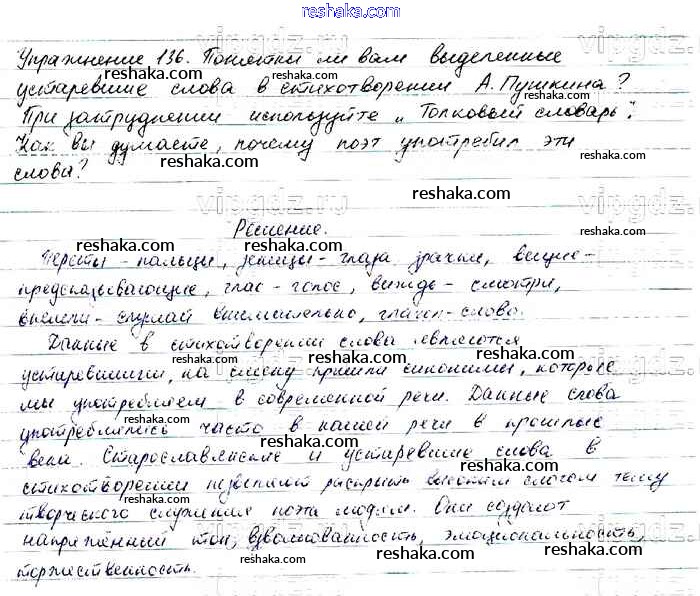 reshaka.com
Упражнение 136. Понятны ли вам выделенные
устаревшие слова в стихотворении А. Пушкина?
При затруднении используйте „Толковый словарь".
Как вы думаете, почему поэт употребил эти
слова?
Решение.
Персты - пальцы, зеницы - глаза, зрачки, вещие -
предсказывающие, глас - голос, виждь - смотри,
внемли - слушай внимательно, глагол - слово.
Данные в стихотворении слова являются
устаревшими, на смену пришли синонимы, которые
мы употребляем в современной речи. Данные слова
употреблялись часто в нашей речи в прошлые
века. Старославянские и устаревшие слова в
стихотворении позволяют раскрыть высоким слогом тему
творческого служения поэта людям. Они создают
напряжённый тон, взволнованность, эмоциональность,
торжественность.
reshaka.com